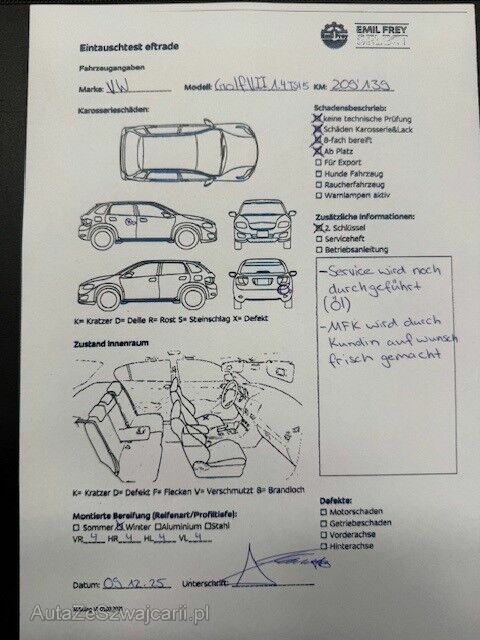 EMIL FREY
SELECT
Eintauschtest eftrade
Fahrzeugangaben
Marke: VW Modell: Golf VII 1.4 TSI 5 KM: 209'139
Karosserieschäden:
Schadensbeschrieb:
keine technische Prüfung
Schäden Karosserie&Lack
8-fach bereift
Ab Platz
Für Export
Hunde Fahrzeug
Raucherfahrzeug
Warnlampen aktiv
Zusätzliche Informationen:
2. Schlüssel
Serviceheft
Betriebsanleitung
- Service wird noch
durchgeführt
(Öl)
- MFK wird durch
Kundin auf wunsch
frisch gemacht
K= Kratzer D= Delle R= Rost S= Steinschlag X= Defekt
Zustand Innenraum
K= Kratzer D= Defekt F= Flecken V= Verschmutzt B= Brandloch
Montierte Bereifung (Reifenart/Profiltiefe):
Sommer Winter Aluminium Stahl
VR 4 HR 4 HL 4 VL 4
Defekte:
Motorschaden
Getriebeschaden
Vorderachse
Hinterachse
Datum: 09.12.25 Unterschrift:
AutaZeSzwajcarii.pl